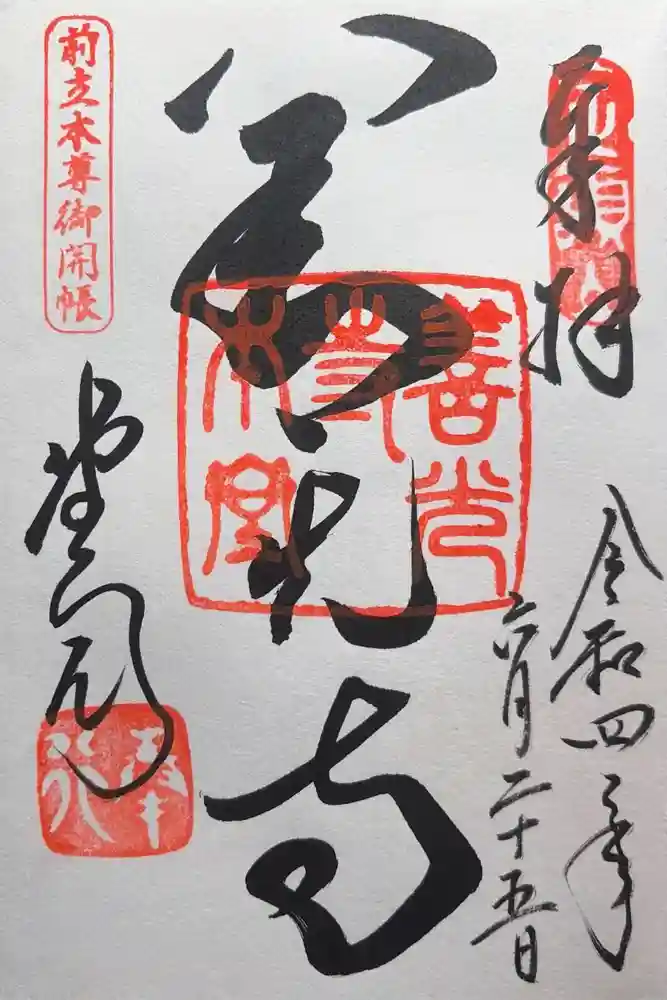 奉拝
令和四年
六月二十五日
善光寺
善光寺本堂
前立本尊御開帳